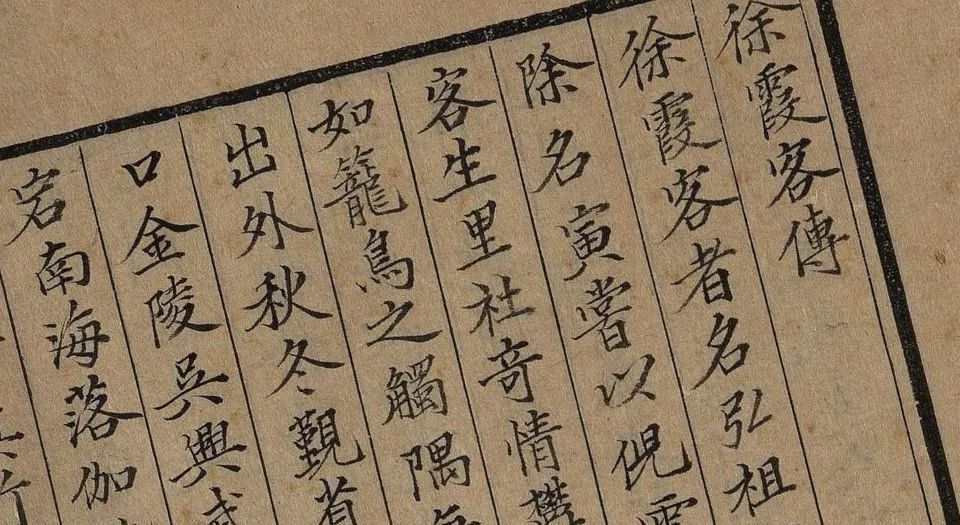 徐霞客傳
徐霞客者名弘祖
除名寅嘗以倪雲
客生里社奇情鬱
如籠鳥之觸隅每
出外秋冬覲省
口金陵吳興
宕南海落伽